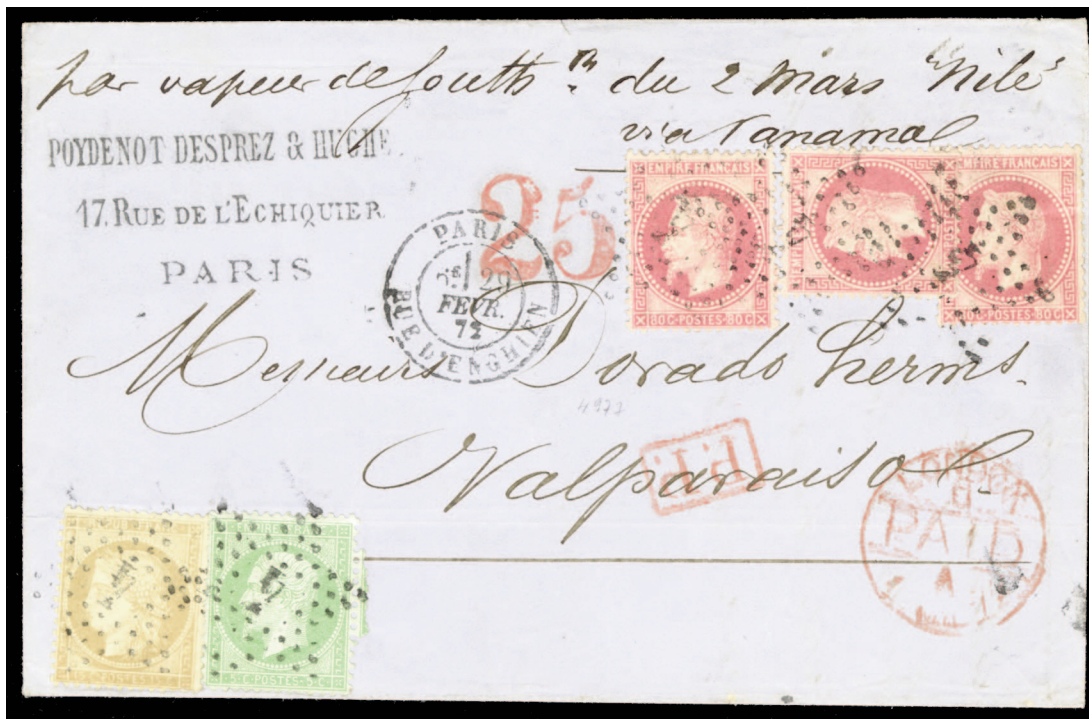 par vapeur de South.n du 2 Mars "Nile"
via Panama
POYDENOT DESPREZ & HUGHE
17. RUE DE L'ECHIQUIER
PARIS
25
PARIS
29
FEVR.
72
RUE D'ENGHIEN
EMPIRE FRANÇAIS
80C·POSTES·80C
EMPIRE FRANÇAIS
80C·POSTES·80C
Messieurs Dorado Herms.
Valparaiso
P.P.
LONDON
PAID
5·C·POSTES·5·C